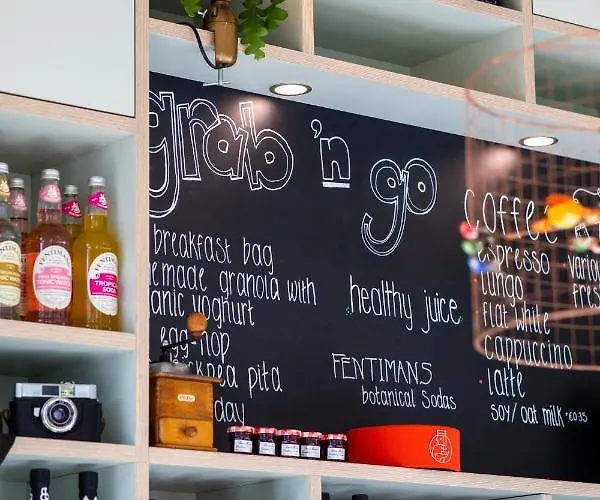 grab 'n go
breakfast bag
emade granola with
anic yoghurt
egg-hop
chicknea pita
day
healthy juice
FENTIMANS
botanical Sodas
coffee
espresso
lungo
flat white
cappuccino
latte
soy/oat milk +€0.35
variou
fres
FENTIMANS
TONIC WATER
FENTIMANS
TROPICAL
SODA